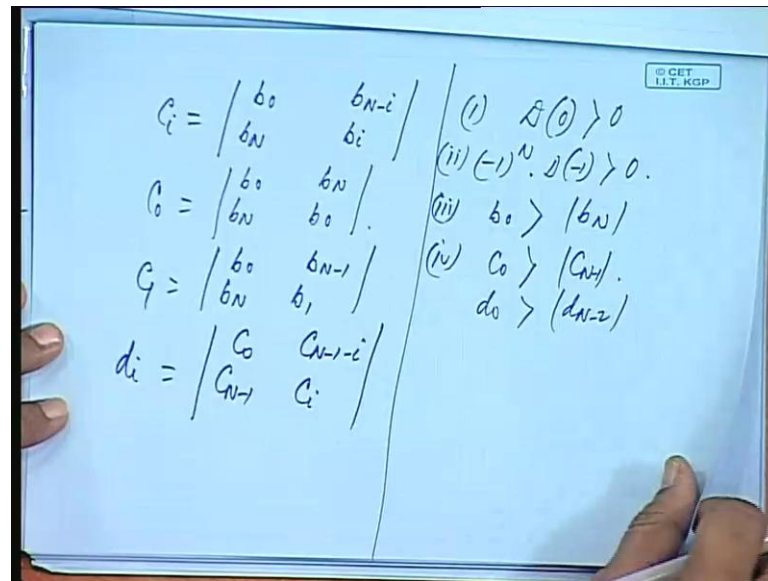 © CET
I.I.T. KGP
C_i = | b_0 b_{N-i} |
| b_N b_i |
C_0 = | b_0 b_N |
| b_N b_0 | .
C_1 = | b_0 b_{N-1} |
| b_N b_1 |
d_i = | C_0 C_{N-1-i} |
| C_{N-1} C_i |
(i) D(0) > 0
(ii) (-1)^N . D(-1) > 0 .
(iii) b_0 > |b_N|
(iv) C_0 > |C_{N-1}| .
d_0 > |d_{N-2}|